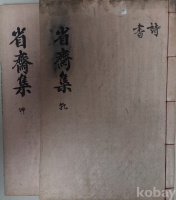 詩書
省齋集 乾
省齋集 坤
kobay